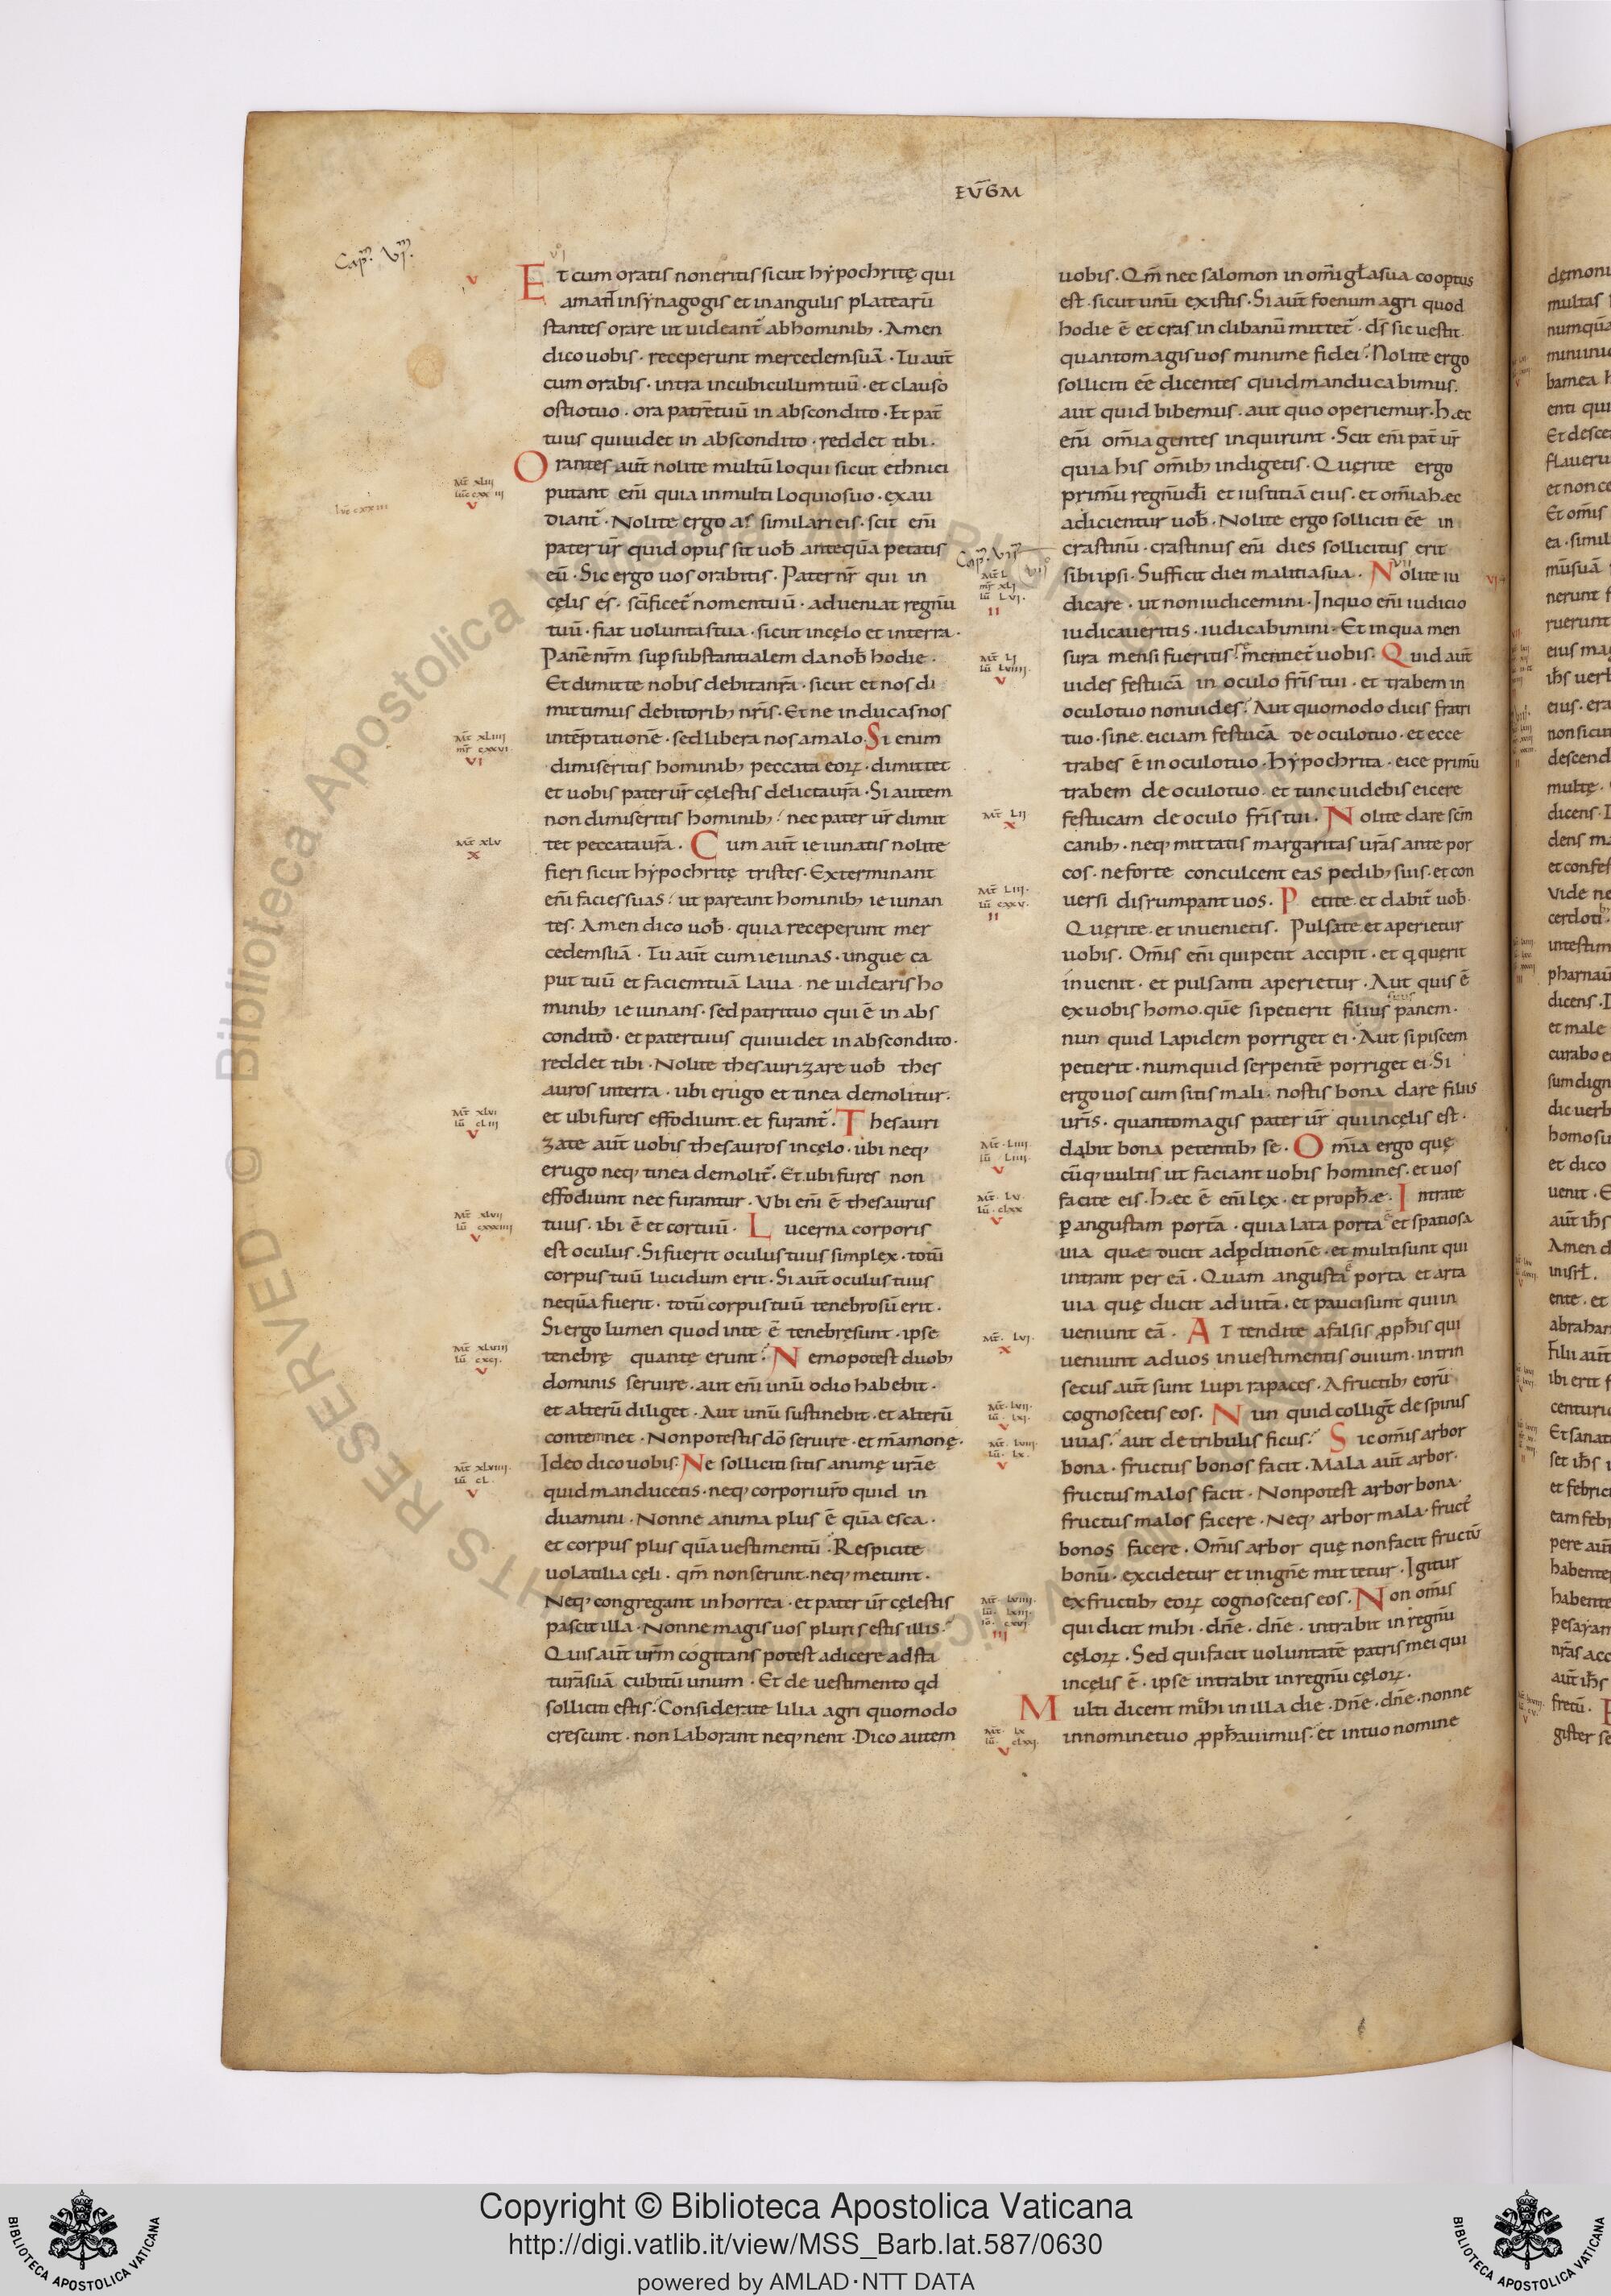 EŪGM
Cap. VI.
Et cum oratis non eritis sicut hẏpochritę qui
amant̄ in sẏnagogis et in angulis platearū
stantes orare ut uideant̄ ab hominib; · Amen
dico uobis · receperunt mercedem suā · Tu aut̄
cum orabis · intra in cubiculum tuū · et clauso
ostio tuo · ora patrē tuū in abscondito · Et pat̄
tuus qui uidet in abscondito · reddet tibi ·
Orantes aut̄ nolite multū loqui sicut ethnici
putant eni̅ quia in multiloquio suo · exau
diant̄ · Nolite ergo assimilari eis · scit eni̅
pater ur̄ quid opus sit uob̄ anteqūa petatis
eū · Sic ergo uos orabitis · Pater nr̄ qui in
cęlis es · sc̄ificet̄ nomen tuū · adueniat regnū
tuū · fiat uoluntas tua · sicut in cęlo et in terra ·
Panē nr̄m sup substantialem da nob̄ hodie ·
Et dimitte nobis debita nr̄a · sicut et nos di
mittimus debitorib; nr̄is · Et ne inducas nos
in tēptationē · sed libera nos a malo · Si enim
dimiseritis hominib; peccata eoꝝ · dimittet
et uobis pater ur̄ cęlestis delicta ur̄a · Si autem
non dimiseritis hominib; nec pater ur̄ dimit
tet peccata ur̄a · Cum aut̄ ieiunatis nolite
fieri sicut hẏpochritę tristes · Exterminant
eni̅ facies suas ut pareant hominib; ieiunan
tes · Amen dico uob̄ · quia receperunt mer
cedem suā · Tu aut̄ cum ieiunas · ungue ca
put tuū et faciem tuā laua · ne uidearis ho
minib; ieiunans · sed patri tuo qui ē in abs
condito · et pater tuus qui uidet in abscondito ·
reddet tibi · Nolite thesaurizare uob̄ thes
auros in terra · ubi erugo et tinea demolitur ·
et ubi fures effodiunt · et furant̄ · Thesauri
zate aut̄ uobis thesauros in cęlo · ubi neq;
erugo neq; tinea demolit̄ · Et ubi fures non
effodiunt nec furantur · Vbi eni̅ ē thesaurus
tuus · ibi ē et cor tuū · Lucerna corporis
est oculus · Si fuerit oculus tuus simplex · totū
corpus tuū lucidum erit · Si aut̄ oculus tuus
neqūa fuerit · totū corpus tuū tenebrosū erit ·
Si ergo lumen quod in te ē tenebrę sunt · ipse
tenebrę quantę erunt · Nemo potest duob;
dominis seruire · aut eni̅ unū odio habebit ·
et alterū diliget · Aut unū sustinebit · et alterū
contemnet · Non potestis dō seruire · et māmonę ·
Ideo dico uobis · Ne solliciti sitis animę ur̄ae
quid manducetis · neq; corpori ur̄o quid in
duamini · Nonne anima plus ē qūa esca ·
et corpus plus qūa uestimentū · Respicite
uolatilia cęli · qm̄ non serunt · neq; metunt ·
Neq; congregant in horrea · et pater ur̄ cęlestis
pascit illa · Nonne magis uos pluris estis illis ·
Quis aut̄ ur̄m cogitans potest adicere ad sta
turā suā cubitū unum · Et de uestimento qd
solliciti estis · Considerate lilia agri quomodo
crescunt · non laborant neq; nent · Dico autem
uobis · Qm̄ nec salomon in om̄i gl̄a sua coopertus
est · sicut unū ex istis · Si aut̄ foenum agri quod
hodie ē et cras in clibanū mittet̄ · ds̄ sic uestit ·
quanto magis uos minime fidei · Nolite ergo
solliciti eē dicentes quid manducabimus ·
aut quid bibemus · aut quo operiemur · hæc
eni̅ om̄ia gentes inquirunt · Scit eni̅ pat̄ ur̄
quia his om̄ib; indigetis · Quęrite ergo
primū regnū dī et iustitiā eius · et om̄ia hæc
adicientur uob̄ · Nolite ergo solliciti eē in
crastinū · crastinus eni̅ dies sollicitus erit
sibi ipsi · Sufficit diei malitia sua · Nolite iu
dicare · ut non iudicemini · In quo eni̅ iudicio
iudicaueritis · iudicabimini · Et in qua men
sura mensi fueritis remetiet̄ uobis · Quid aut̄
uides festucā in oculo fr̄is tui · et trabem in
oculo tuo non uides · Aut quomodo dicis fratri
tuo · sine · eiciam festucā de oculo tuo · et ecce
trabes ē in oculo tuo · Hẏpochrita · eice primū
trabem de oculo tuo · et tunc uidebis eicere
festucam de oculo fr̄is tui · Nolite dare scm̄
canib; · neq; mittatis margaritas ur̄as ante por
cos · ne forte conculcent eas pedib; suis · et con
uersi disrumpant uos · Petite · et dabit̄ uob̄ ·
Quęrite · et inuenietis · Pulsate · et aperietur
uobis · Om̄is eni̅ qui petit accipit · et q quęrit
inuenit · et pulsanti aperietur · Aut quis ē
ex uobis homo · quē si petierit filius suus panem ·
nun quid lapidem porriget ei · Aut si piscem
petierit · numquid serpentē porriget ei · Si
ergo uos cum sitis mali · nostis bona dare filiis
ur̄is · quanto magis pater ur̄ qui in cęlis est ·
dabit bona petentib; se · Om̄ia ergo quę
cūq; uultis ut faciant uobis homines · et uos
facite eis · Hæc ē eni̅ lex · et proph̄æ · Intrate
p̱ angustam portā · quia lata porta ē et spatiosa
uia quæ ducit ad p̱ditionē · et multi sunt qui
intrant per eā · Quam angusta porta et arta
uia quę ducit ad uitā · et pauci sunt qui in
ueniunt eā · Attendite a falsis ꝓph̄is qui
ueniunt ad uos in uestimentis ouium · intrin
secus aut̄ sunt lupi rapaces · A fructib; eorū
cognoscetis eos · Nun quid colligt̄ de spinis
uuas · aut de tribulis ficus · Sic om̄is arbor
bona · fructus bonos facit · Mala aut̄ arbor ·
fructus malos facit · Non potest arbor bona ·
fructus malos facere · Neq; arbor mala · fruct̄
bonos facere · Om̄is arbor quę non facit fructū
bonū · excidetur et in ignē mittetur · Igitur
ex fructib; eoꝝ cognoscetis eos · Non om̄is
qui dicit mihi · dn̄e · dn̄e · intrabit in regnū
cęloꝝ · Sed qui facit uoluntatē patris mei qui
in cęlis ē · ipse intrabit in regnū cęloꝝ ·
Multi dicent mihi in illa die · Dn̄e · dn̄e · nonne
in nomine tuo ꝓph̄auimus · et in tuo nomine
Copyright © Biblioteca Apostolica Vaticana
http://digi.vatlib.it/view/MSS_Barb.lat.587/0630
powered by AMLAD·NTT DATA